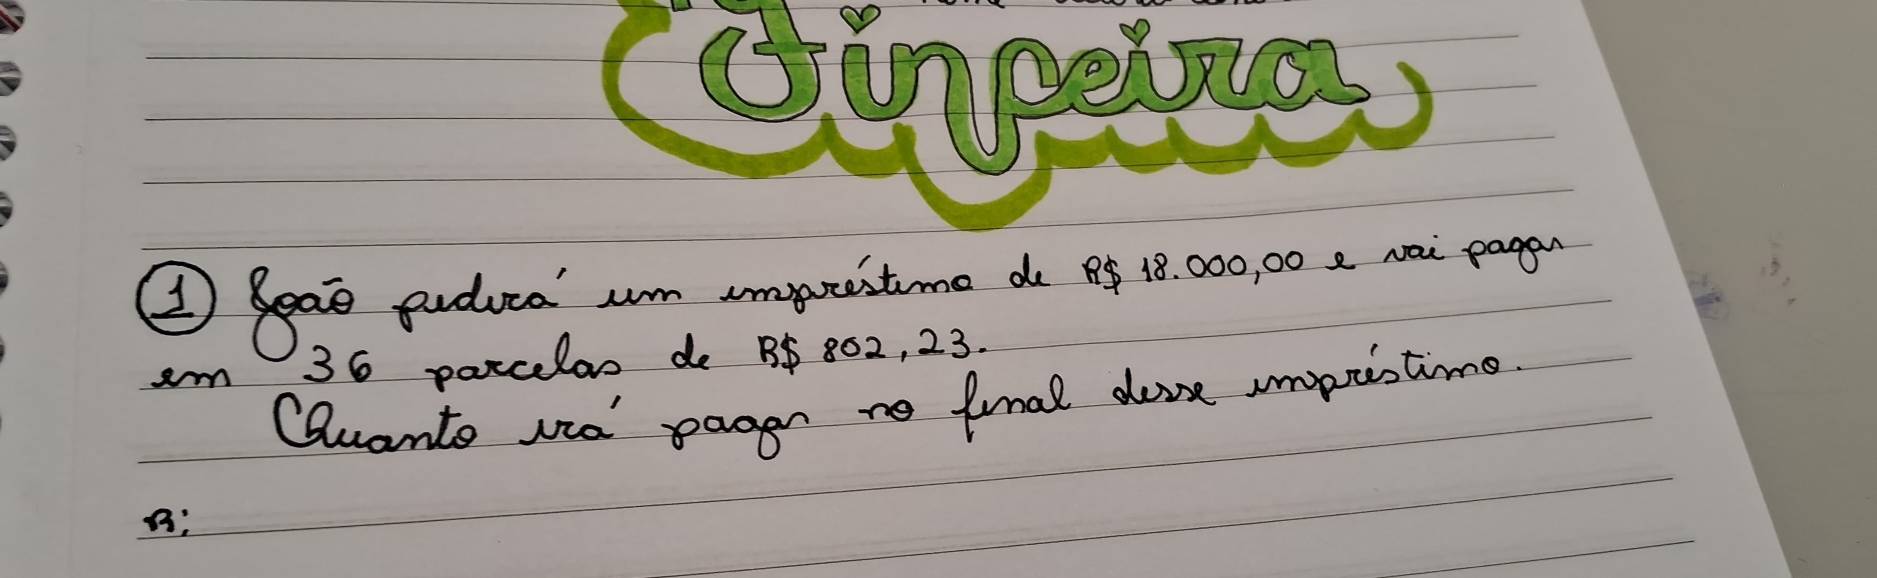 Finfeira
① João pedirá um empréstimo de R$ 18.000,00 e vai pagar
em 36 parcelas de R$ 802,23.
Quanto irá pagar no final desse empréstimo.
R: